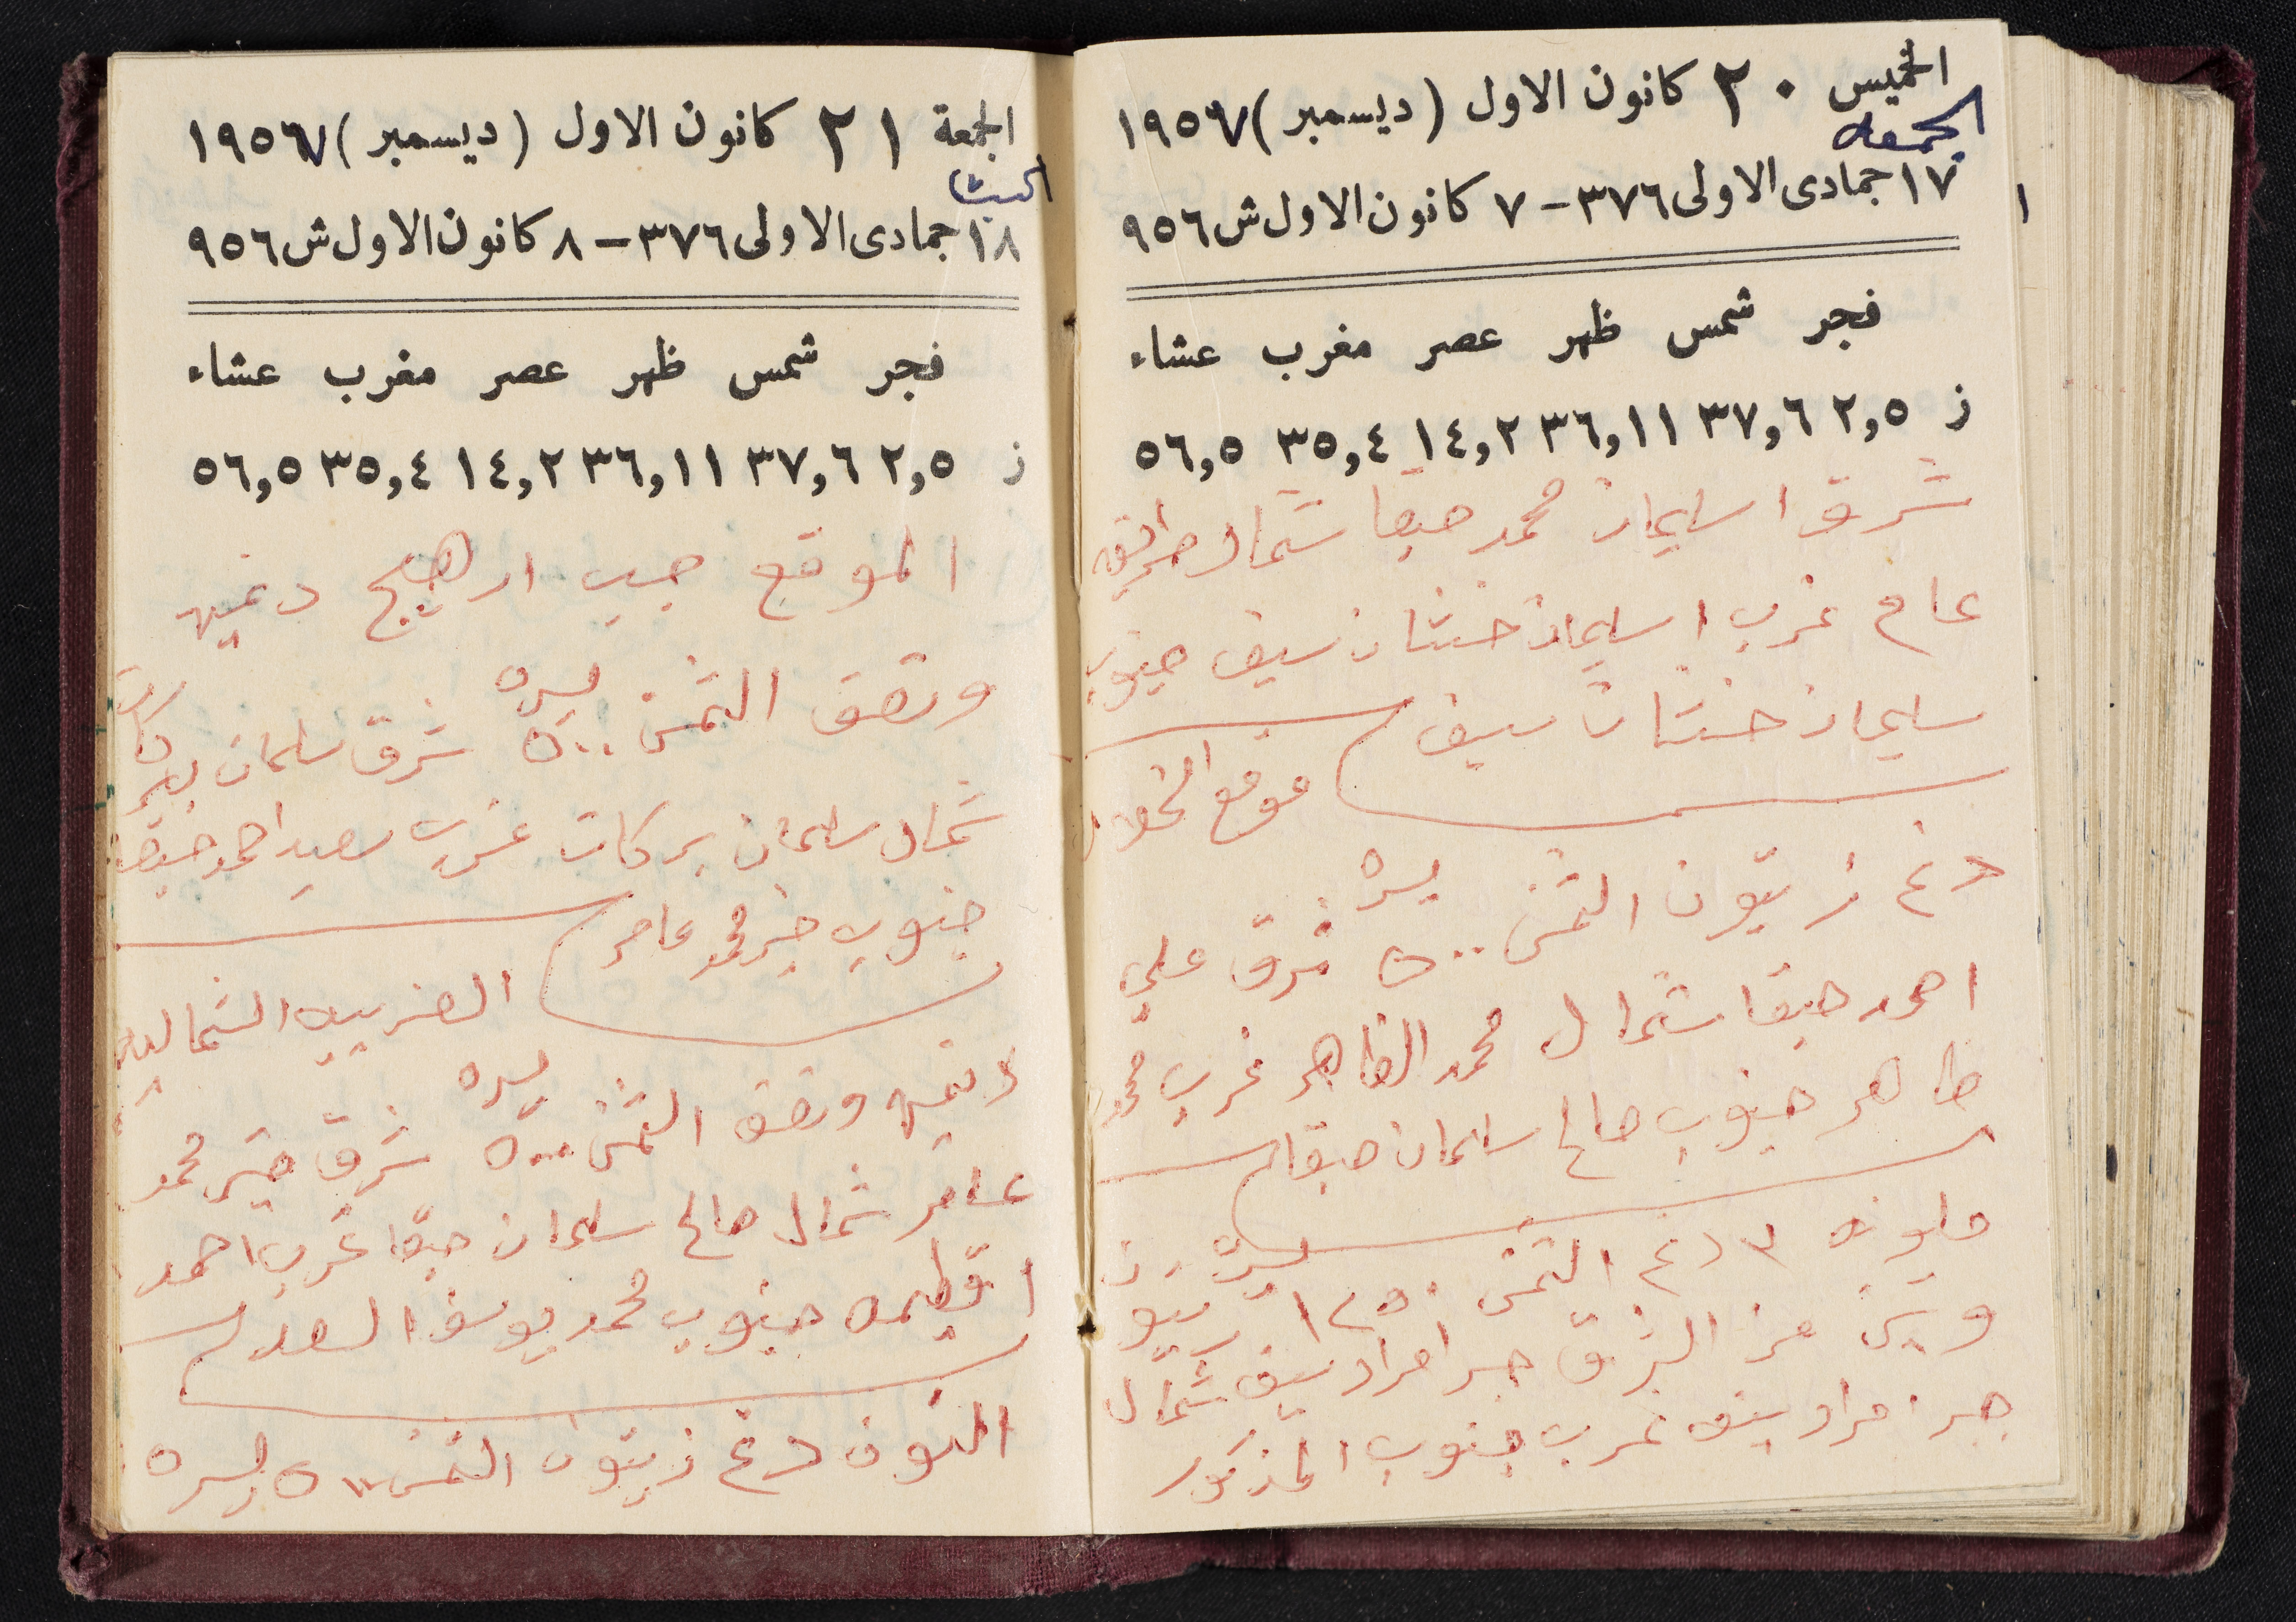 الخميس ٢٠ كانون الاول (ديسمبر) ١٩٥٦٧
الجمعه
١٧ جمادى الاولى ٣٧٦ – ٧ كانون الاول ش ٩٥٦
فجر شمس ظهر عصر مغرب عشاء
ز ٢,٥ ٣٧,٦ ٣٦,١١ ١٤,٢ ٣٥,٤ ٥٦,٥
شرق اسليمان محمد حيقا شمال طريق
عام غرب اسليمان سيف جنوب
سليمان سيف
موقع
دنم زيتون الثمن ٥٠٠ ليره شرق علي
احمد حيقا شمال محمد الظاهر غرب محمد
ظاهر جنوب صالح سلمان حيقا
٣ دنم الثمن ١٢٥٠ ليره زيتون
الشرق جبر امراد سيف شمال
جبر امراد سيف غرب جنوب المذكور
الجمعة ٢١ كانون الاول (ديسمبر) ١٩٥٦٧
السبت
١٨ جمادى الاولى ٣٧٦ – ٨ كانون الاول ش ٩٥٦
فجر شمس ظهر عصر مغرب عشاء
ز ٢,٥ ٣٧,٦ ٣٦,١١ ١٤,٢ ٣٥,٤ ٥٦,٥
الموقع جب ارهيج دنميه
ونصف الثمن ٥٠٠ ليره شرق سلمان بركات
شمال سلمان بركات غرب سعيد احمد حيقا
جنوب جبر محمد عامر
الغربيه الشماليه
دنميه ونصف الثمن ٥٠٠ ليره شرق جبر محمد
عامر شمال صالح سلمان حيقا غرب احمد
اقطيمه جنوب محمد يوسف السعد
دنم زيتون الثمن ٥٠٠ ليره